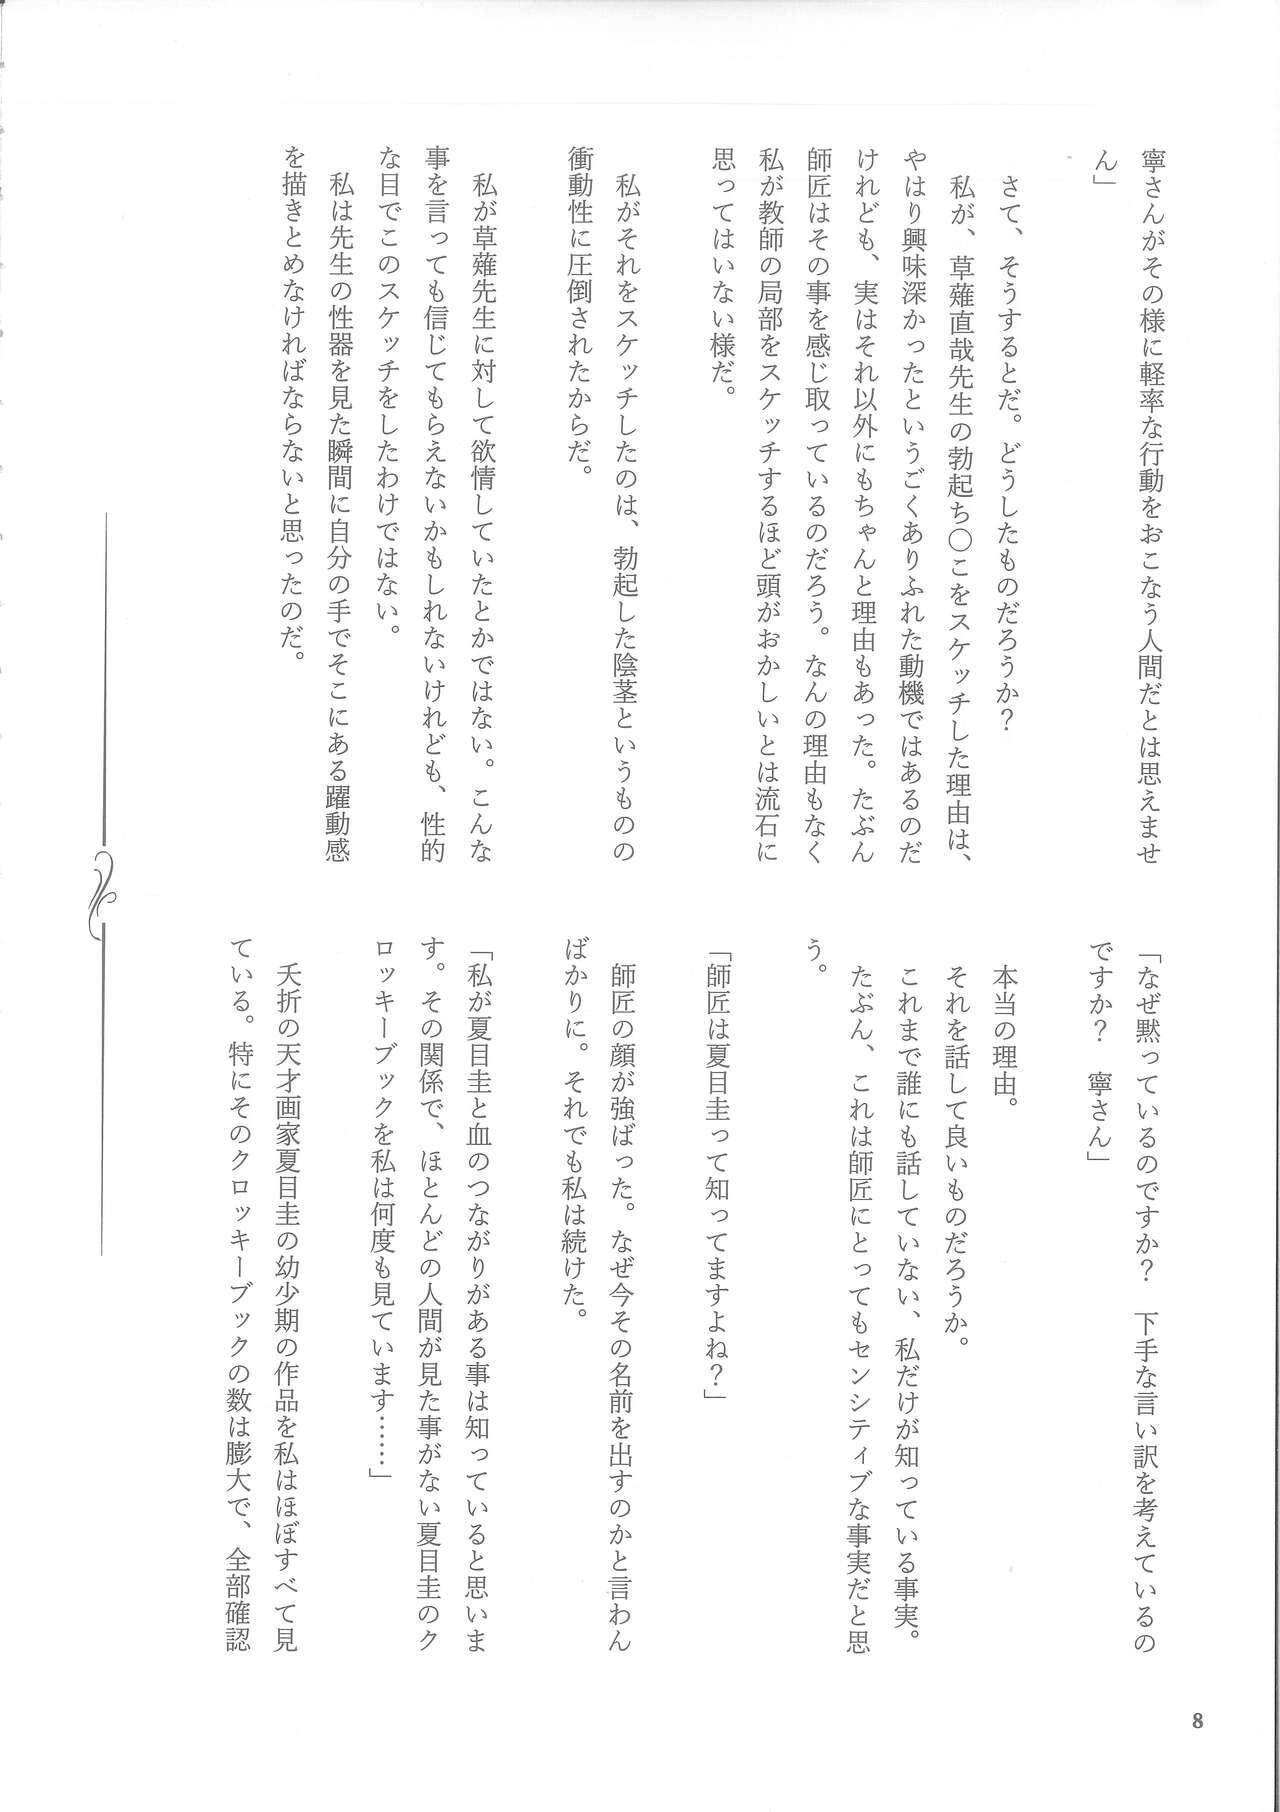 寧さんがその様に軽率な行動をおこなう人間だとは思えませ
ん」
さて、そうするとだ。どうしたものだろうか？
私が、草薙直哉先生の勃起ち〇こをスケッチした理由は、
やはり興味深かったというごくありふれた動機ではあるのだ
けれども、実はそれ以外にもちゃんと理由もあった。たぶん
師匠はその事を感じ取っているのだろう。なんの理由もなく
私が教師の局部をスケッチするほど頭がおかしいとは流石に
思ってはいない様だ。
私がそれをスケッチしたのは、勃起した陰茎というものの
衝動性に圧倒されたからだ。
私が草薙先生に対して欲情していたとかではない。こんな
事を言っても信じてもらえないかもしれないけれども、性的
な目でこのスケッチをしたわけではない。
私は先生の性器を見た瞬間に自分の手でそこにある躍動感
を描きとめなければならないと思ったのだ。
「なぜ黙っているのですか？　下手な言い訳を考えているの
ですか？　寧さん」
本当の理由。
それを話して良いものだろうか。
これまで誰にも話していない、私だけが知っている事実。
たぶん、これは師匠にとってもセンシティブな事実だと思
う。
「師匠は夏目圭って知ってますよね？」
師匠の顔が強ばった。なぜ今その名前を出すのかと言わん
ばかりに。それでも私は続けた。
「私が夏目圭と血のつながりがある事は知っていると思いま
す。その関係で、ほとんどの人間が見た事がない夏目圭のク
ロッキーブックを私は何度も見ています……」
夭折の天才画家夏目圭の幼少期の作品を私はほぼすべて見
ている。特にそのクロッキーブックの数は膨大で、全部確認
8